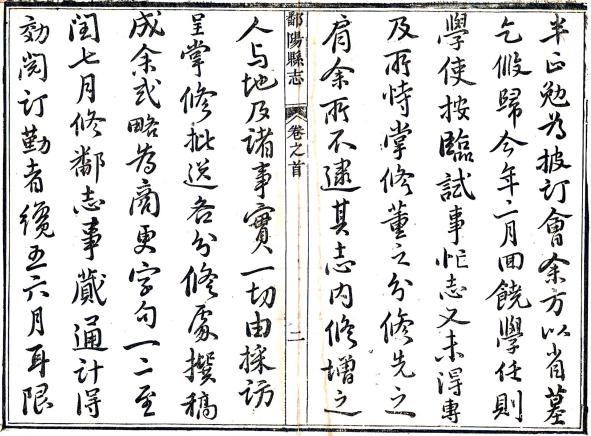 半正勉為披訂會余方以省墓
乞假歸今年二月回饒學任則
學使按臨試事忙志又未得專
及所恃掌修董之分修先之
肩余所不逮其志内修增之
鄱陽縣志 卷之首 二
人与地及諸事實一切由採訪
呈掌修批送各分修處撰稿
成余或略為商更字句一二至
閏七月修鄱志事蕆通計得
効閱訂勤者纔五六月耳限